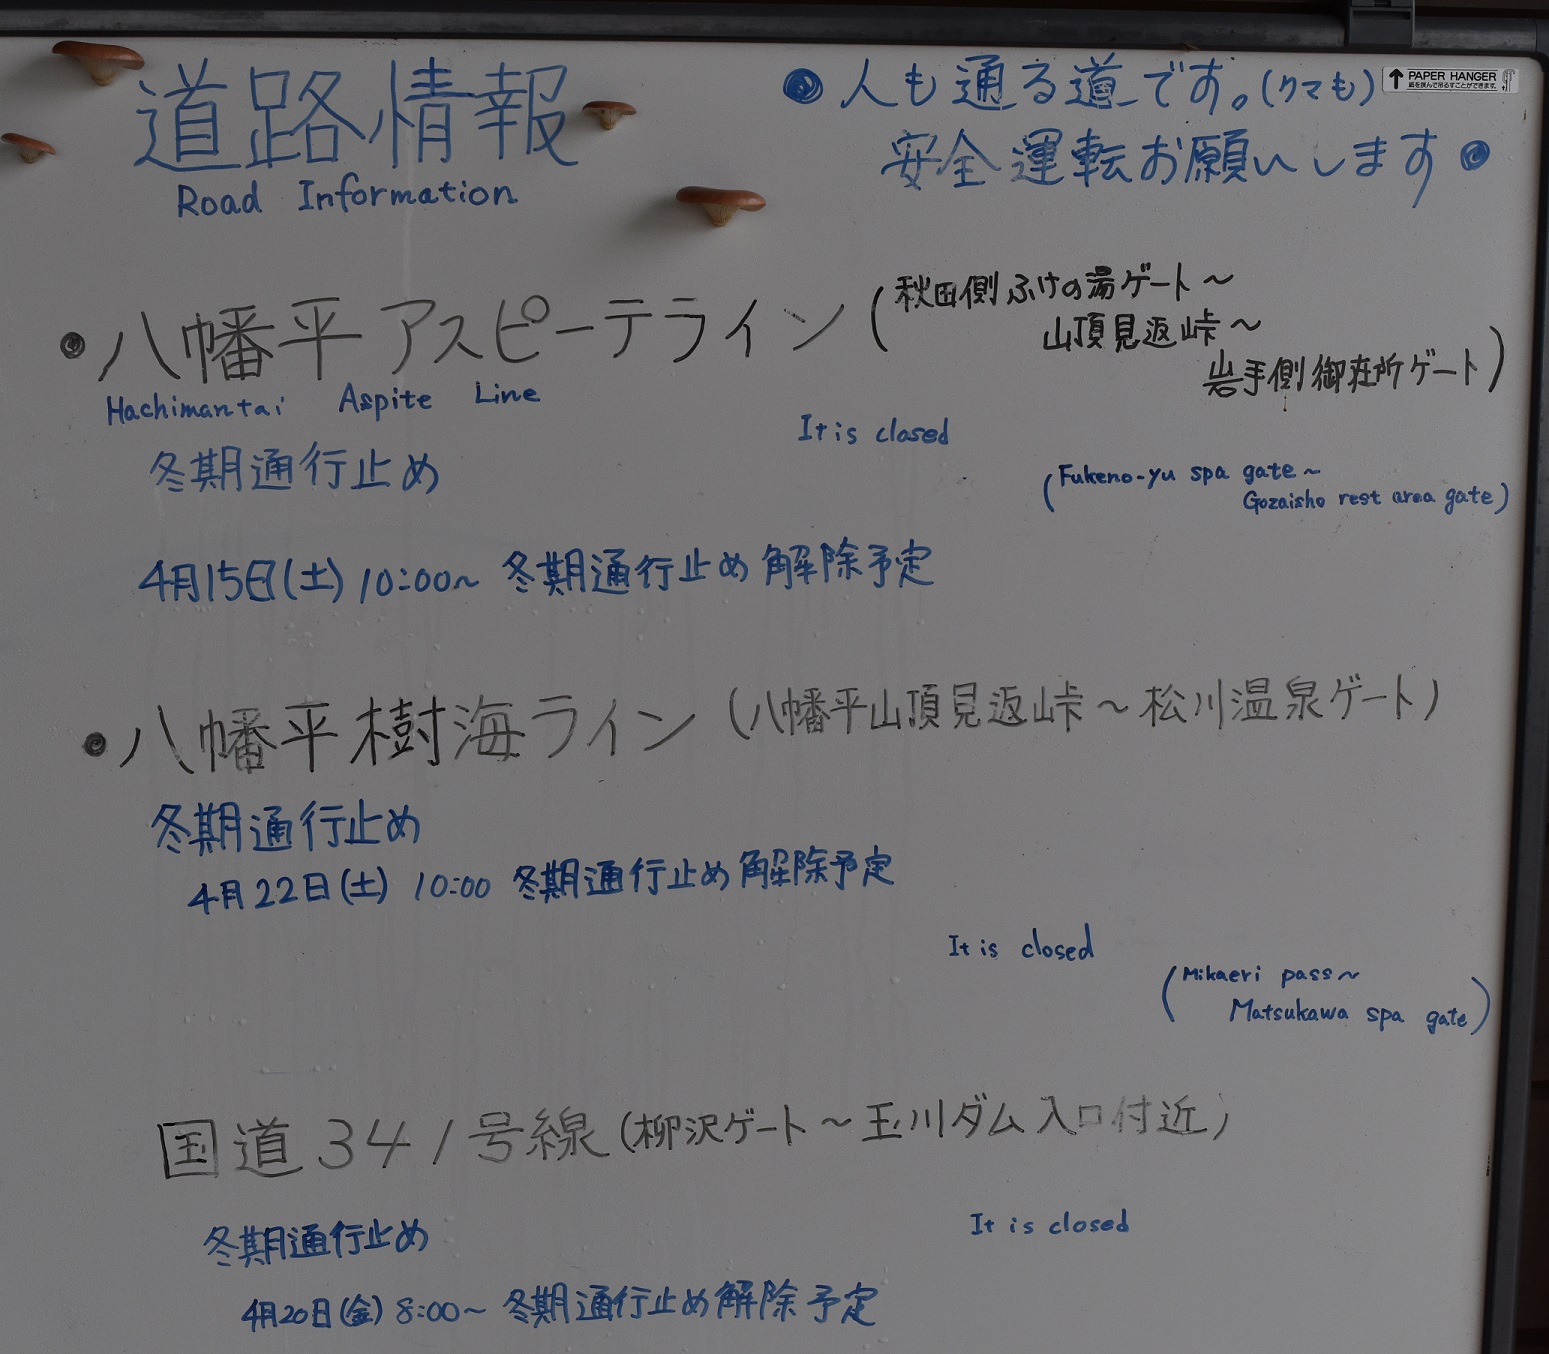 道路情報
Road Information
●人も通る道です。(クマも)
安全運転お願いします●
↑ PAPER HANGER
紙を挟んで吊るすことができます。
●八幡平アスピーテライン(秋田側ふけの湯ゲート～
山頂見返峠～
岩手側御在所ゲート)
Hachimantai Aspite Line
It is closed
冬期通行止め
(Fukeno-yu spa gate~
Gozaisho rest area gate)
4月15日(土) 10:00~ 冬期通行止め解除予定
●八幡平樹海ライン(八幡平山頂見返峠～松川温泉ゲート)
冬期通行止め
4月22日(土) 10:00 冬期通行止め解除予定
It is closed
(Mikaeri pass~
Matsukawa spa gate)
国道341号線(柳沢ゲート～玉川ダム入口付近)
冬期通行止め
It is closed
4月20日(金) 8:00~ 冬期通行止め解除予定